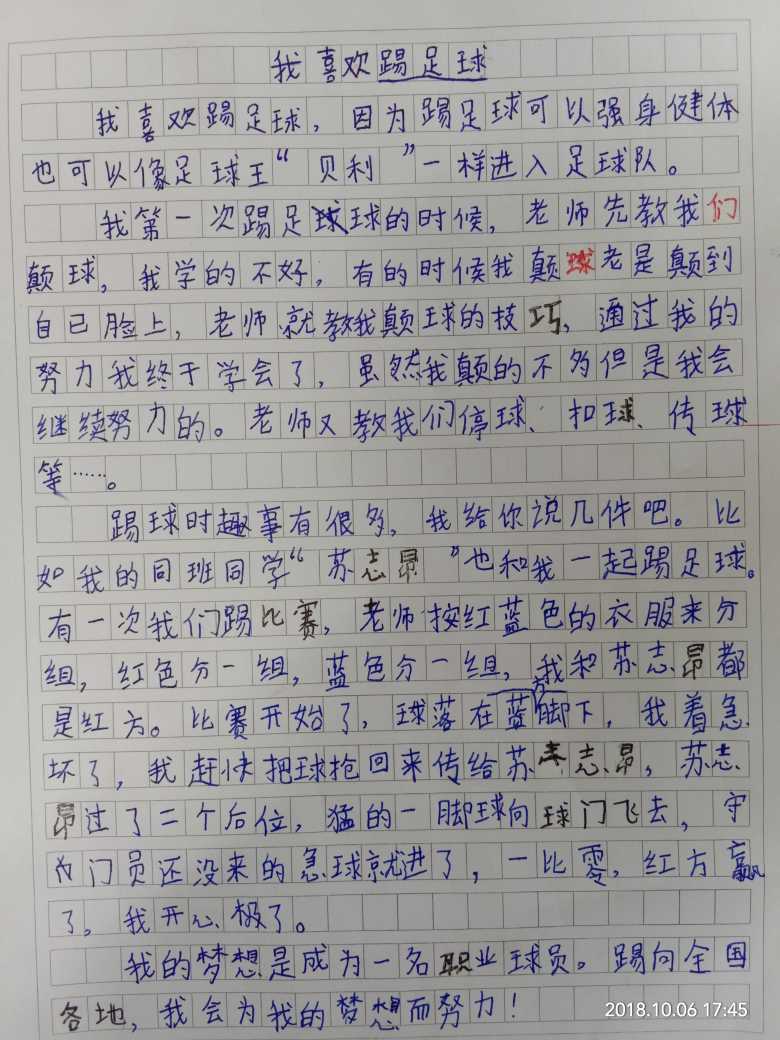 我喜欢踢足球
我喜欢踢足球，因为踢足球可以强身健体
也可以像足球王“贝利”一样进入足球队。
我第一次踢足球球的时候，老师先教我们
颠球，我学的不好，有的时候我颠球老是颠到
自己脸上，老师就教我颠球的技巧，通过我的
努力我终于学会了，虽然我颠的不多但是我会
继续努力的。老师又教我们停球、扣球、传球
等……。
踢球时趣事有很多，我给你说几件吧。比
如我的同班同学“苏志昂”也和我一起踢足球。
有一次我们踢比赛，老师按红蓝色的衣服来分
组，红色分一组，蓝色分一组，我和苏志昂都
是红方。比赛开始了，球落在蓝方脚下，我着急
坏了，我赶快把球抢回来传给苏志昂，苏志
昂过了二个后位，猛的一脚球向球门飞去，守
门员还没来的急球就进了，一比零，红方赢
了。我开心极了。
我的梦想是成为一名职业球员。踢向全国
各地，我会为我的梦想而努力！
2018.10.06 17:45